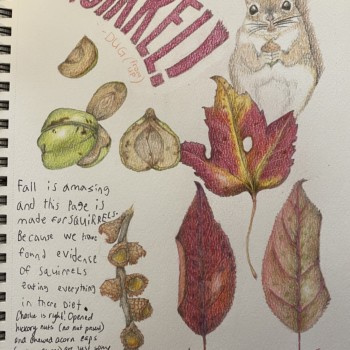 SQUIRREL!
- DUG ("UP")
Fall is amazing
and this page is
made for SQUIRRELS.
Because we have
found evidence
of squirrels
eating everything
in there diet.
Charlie is right! Opened
hickory nuts (no nut paws)
and chewed acorn caps